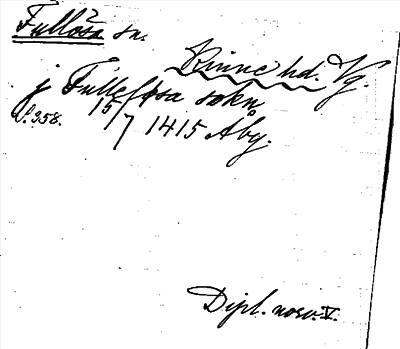 Fullösa sn.
Kinne hd. Vg.
j Fullefosa sokn
S. 358. 15/7 1415 Åby.
Dipl. norv. V.